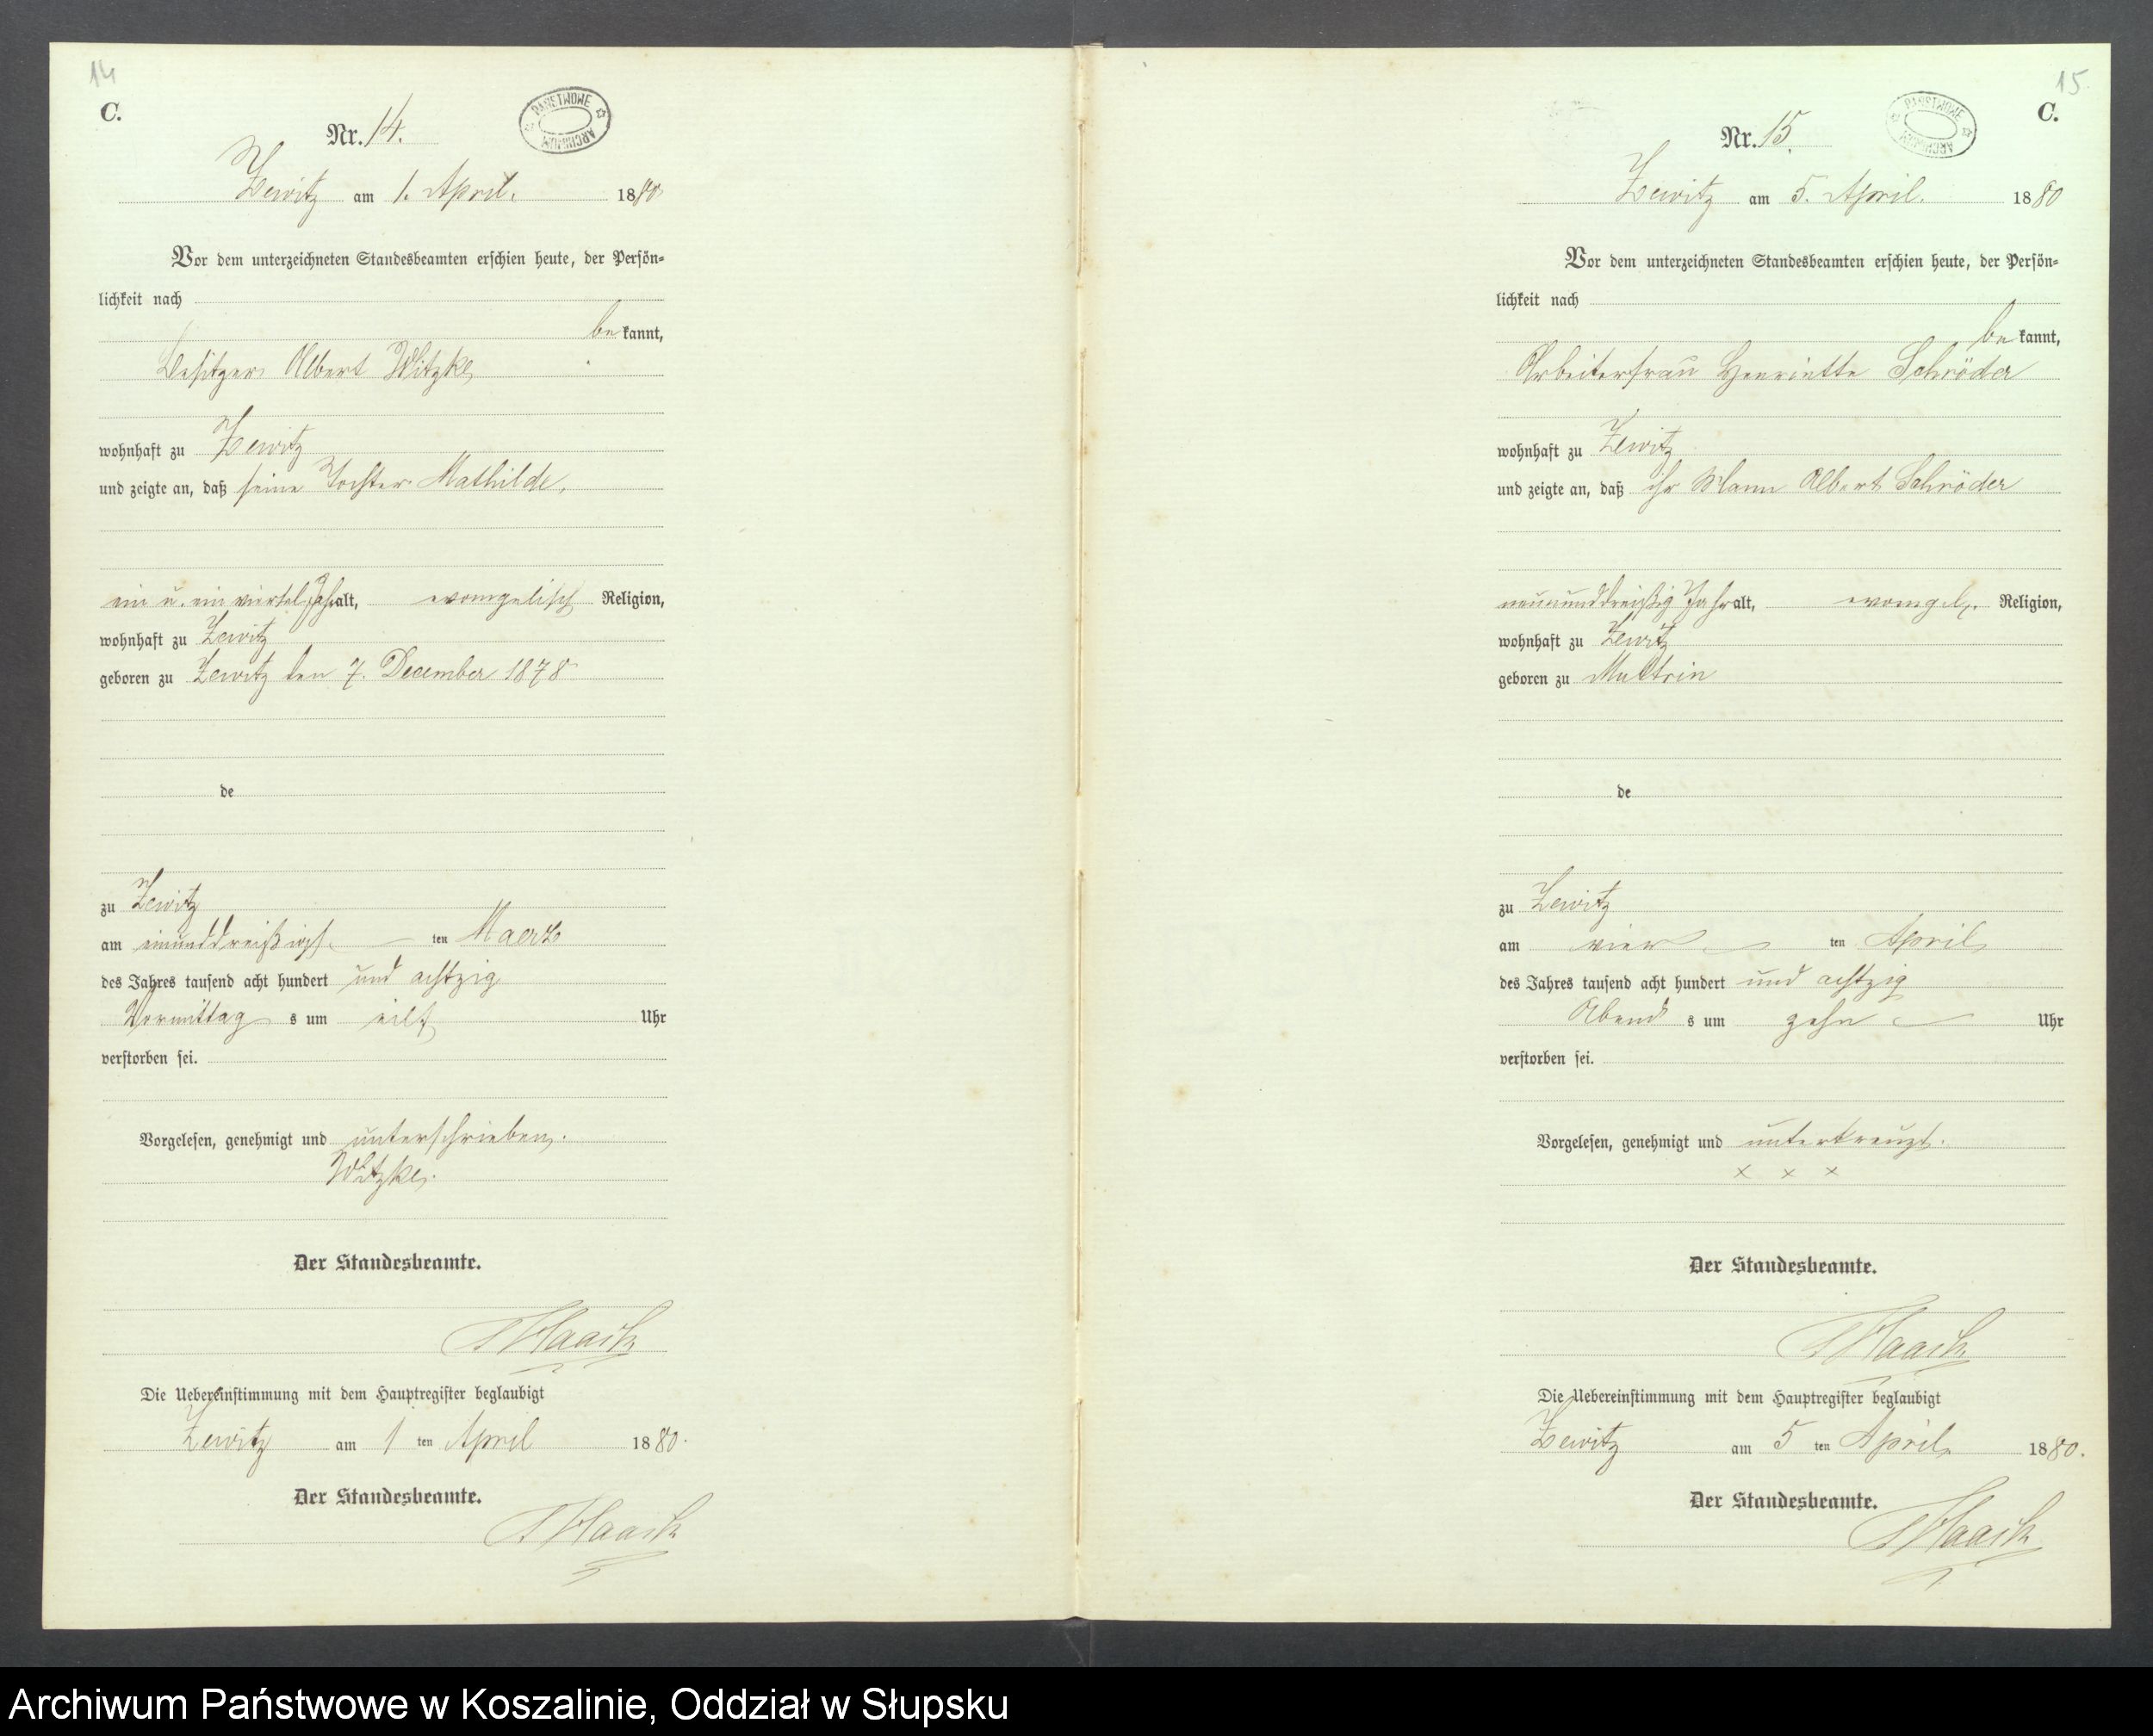 14
C.
Nr. 14.
PAŃSTWOWE ARCHIWUM
Zewitz am 1. April. 1880
Vor dem unterzeichneten Standesbeamten erschien heute, der Persön-
lichkeit nach
bekannt,
Besitzer Albert Witzke
wohnhaft zu Zewitz
und zeigte an, daß seine Tochter Mathilde,
ein u. ein viertel Jahr alt, evangelisch Religion,
wohnhaft zu Zewitz
geboren zu Zewitz den 7. December 1878
de
zu Zewitz
am einunddreißigst ten Maerz
des Jahres tausend acht hundert und achtzig
Vormittag s um eilf Uhr
verstorben sei.
Vorgelesen, genehmigt und unterschrieben.
Witzke.
Der Standesbeamte.
Haack
Die Uebereinstimmung mit dem Hauptregister beglaubigt
Zewitz am 1 ten April 1880.
Der Standesbeamte.
Haack
15.
C.
Nr. 15.
PAŃSTWOWE ARCHIWUM
Zewitz am 5. April. 1880
Vor dem unterzeichneten Standesbeamten erschien heute, der Persön-
lichkeit nach
bekannt,
Arbeiterfrau Henriette Schröder
wohnhaft zu Zewitz
und zeigte an, daß ihr Mann Albert Schröder
neununddreißig Jahr alt, evangel. Religion,
wohnhaft zu Zewitz
geboren zu Muttrin
de
zu Zewitz
am vier ten April
des Jahres tausend acht hundert und achtzig
Abend s um zehn Uhr
verstorben sei.
Vorgelesen, genehmigt und unterkreuzt.
x x x
Der Standesbeamte.
Haack
Die Uebereinstimmung mit dem Hauptregister beglaubigt
Zewitz am 5 ten April 1880.
Der Standesbeamte.
Haack
Archiwum Państwowe w Koszalinie, Oddział w Słupsku